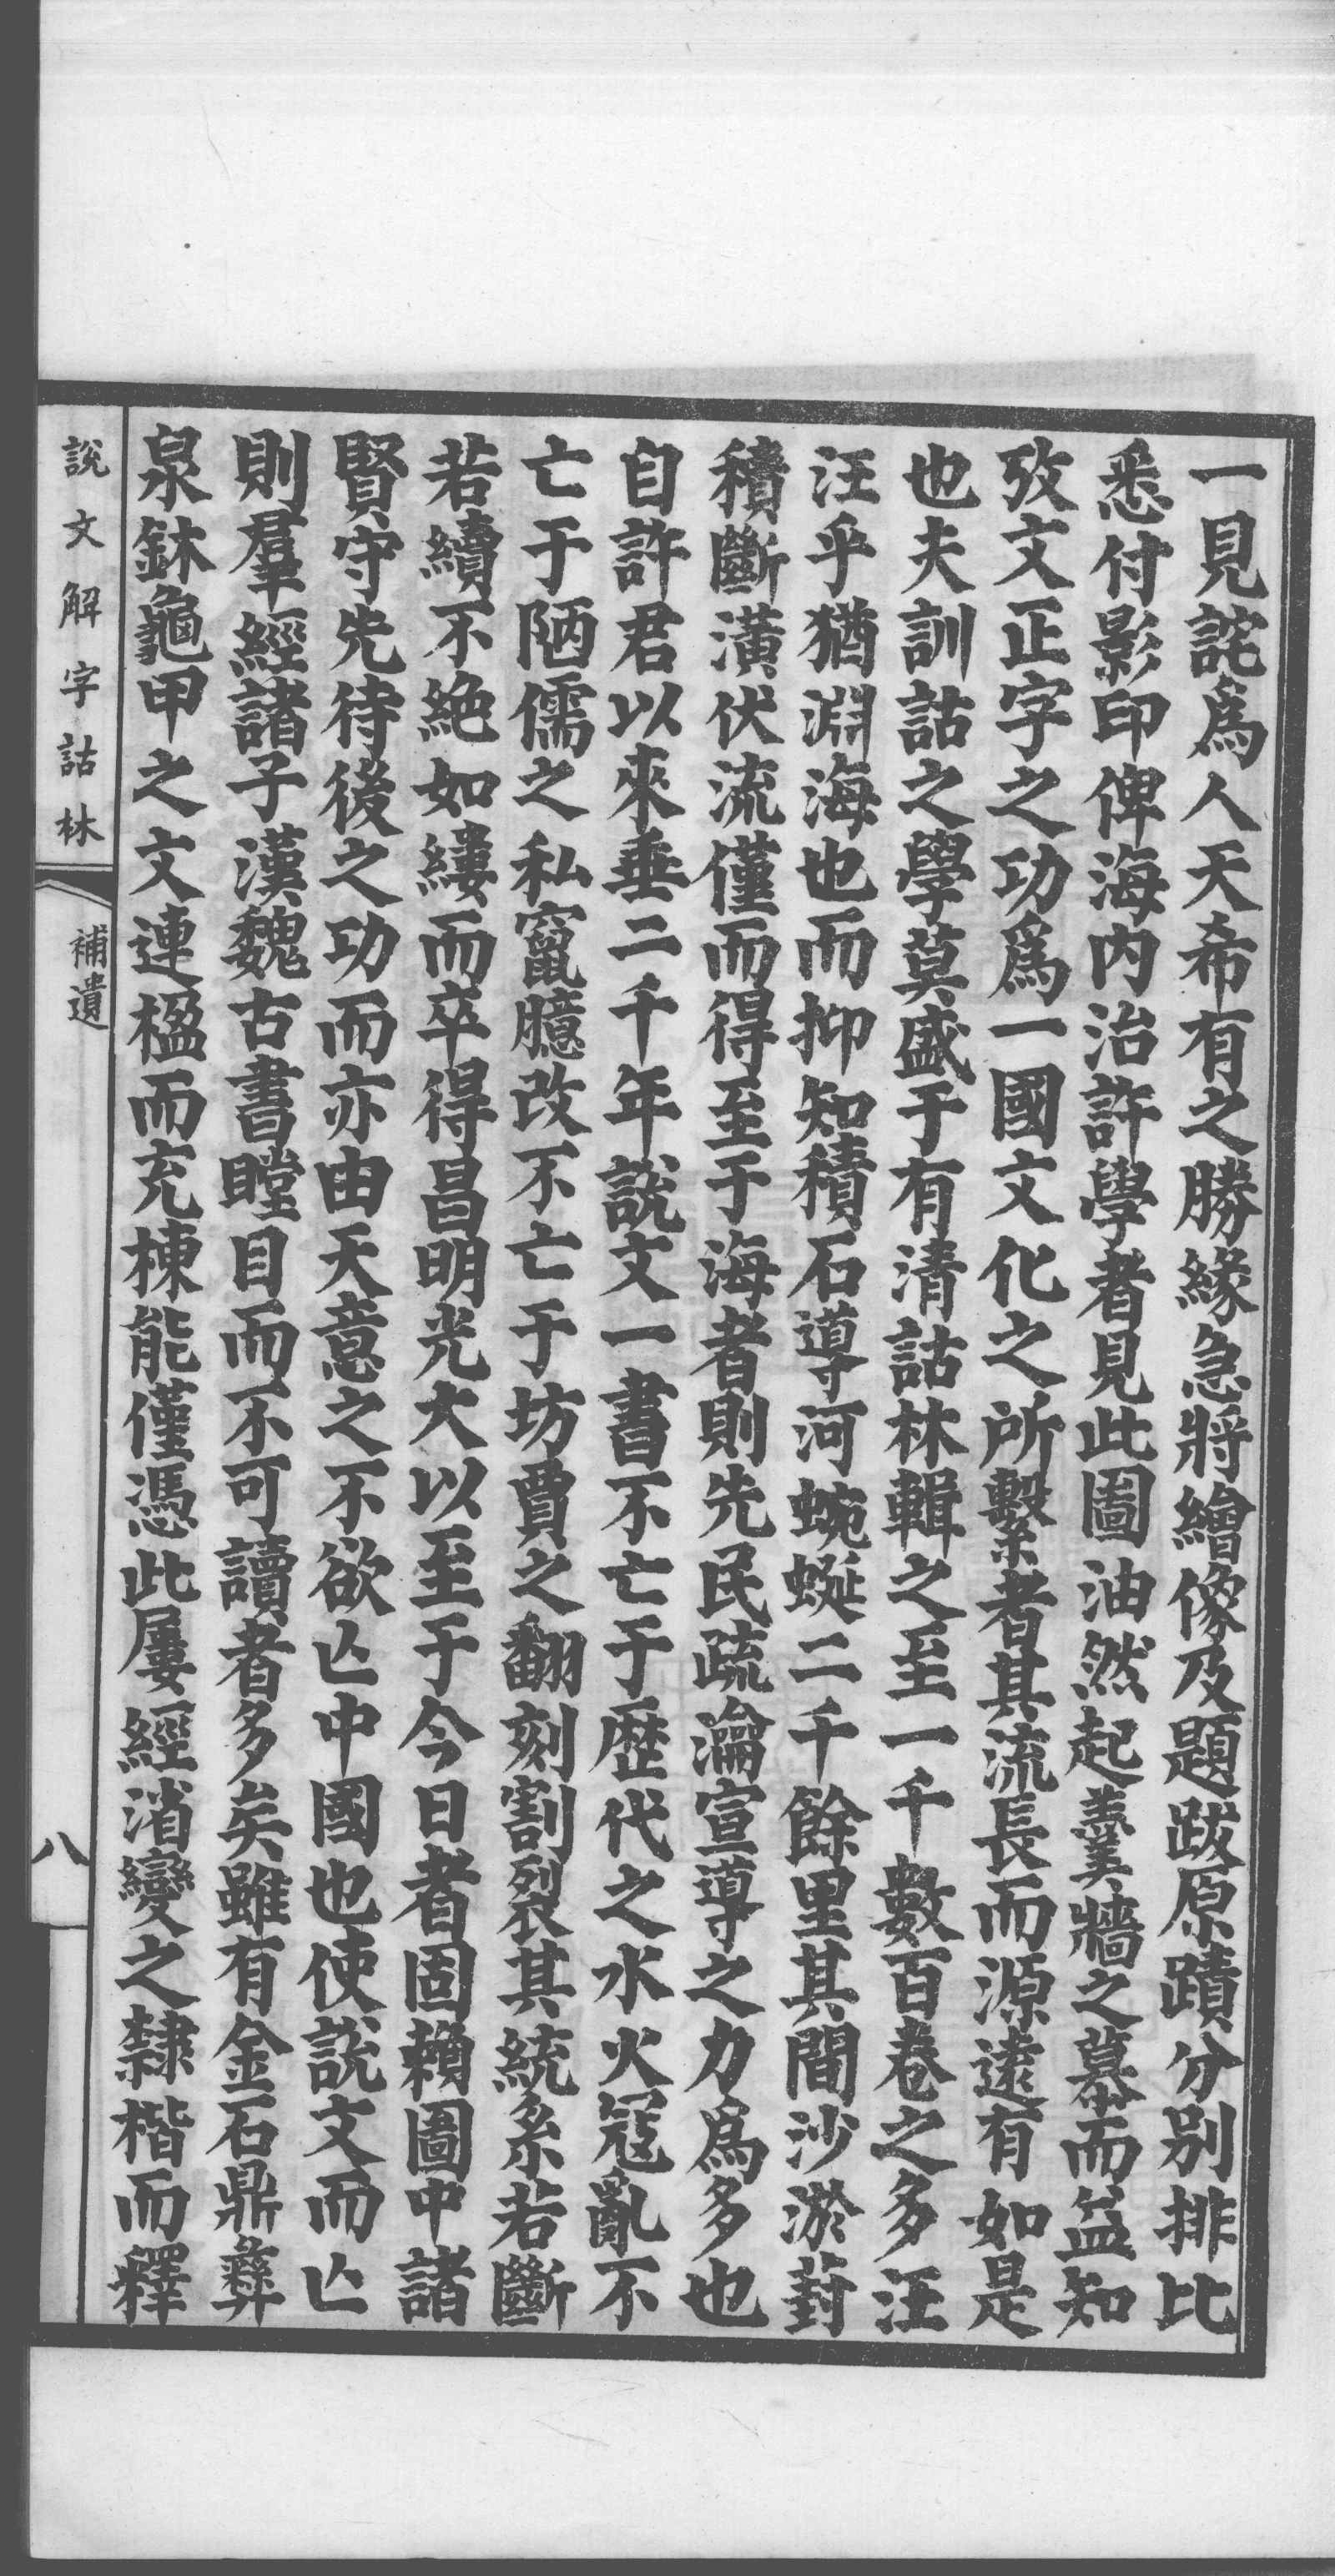 一見詫爲人天希有之勝緣急將繪像及題跋原蹟分別排比
悉付影印俾海內治許學者見此圖油然起羹牆之慕而益知
攷文正字之功爲一國文化之所繫者其流長而源遠有如是
也夫訓詁之學莫盛于有清詁林輯之至一千數百卷之多汪
汪乎猶淵海也而抑知積石導河蜿蜒二千餘里其間沙淤葑
積斷潢伏流僅而得至于海者則先民疏瀹宣導之力爲多也
自許君以來垂二千年說文一書不亡于歷代之水火寇亂不
亡于陋儒之私竄臆改不亡于坊賈之翻刻割裂其統系若斷
若續不絕如縷而卒得昌明光大以至于今日者固賴圖中諸
賢守先待後之功而亦由天意之不欲亾中國也使說文而亾
則羣經諸子漢魏古書瞠目而不可讀者多矣雖有金石鼎彝
泉鉥龜甲之文連楹而充棟能僅憑此屢經消變之隸楷而釋
說文解字詁林
補遺
八